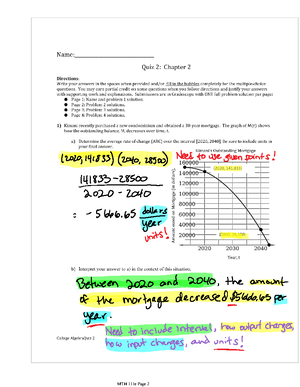 Name:
Quiz 2: Chapter 2
Directions:
Write your answers in the spaces when provided and/or fill in the bubbles completely for the multiple-choice
questions. You may earn partial credit on some questions when you follow directions and justify your answers
with supporting work and explanations. Submissions are in Gradescope with ONE full problem solution per page:
● Page 1: Name and problem 1 solution
● Page 2: Problem 2 solutions.
● Page 3: Problem 3 solutions.
● Page 4: Problem 4 solutions.
1) Kimani recently purchased a new condominium and obtained a 30-year mortgage. The graph of M(t) shows
how the outstanding balance, M, decreases over time, t.
(a) Determine the average rate of change (ARC) over the interval [2020, 2040]. Be sure to include units in
your final answer.
(2020, 141833) (2040, 28500)
Need to use given points!
Kimani's Outstanding Mortgage
141833 - 28500
2020 - 2040
= -5666.65 dollars
year
units!
Amount owed on Mortgage (in dollars)
160000
140000
120000
100000
80000
60000
40000
20000
2020 2030 2040
Year, t
b) Interpret your answer to a) in the context of this situation.
Between 2020 and 2040, the amount
of the mortgage decreased $5666.65 per
year.
Need to include interval, how output changes,
how input changes, and units!
College Algebra Quiz 2
MTH 111c Page 2